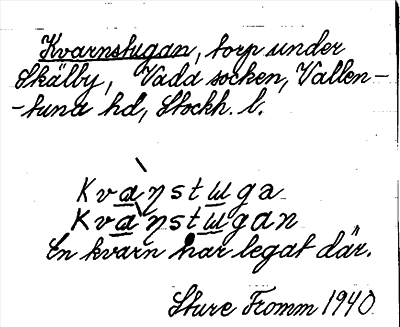 Kvarnstugan, torp under
Skälby, Vada socken, Vallen-
-tuna hd, Stockh. l.
Kvaṇstuga
Kvaṇstugan
En kvarn har legat där.
Sture Fromm 1940